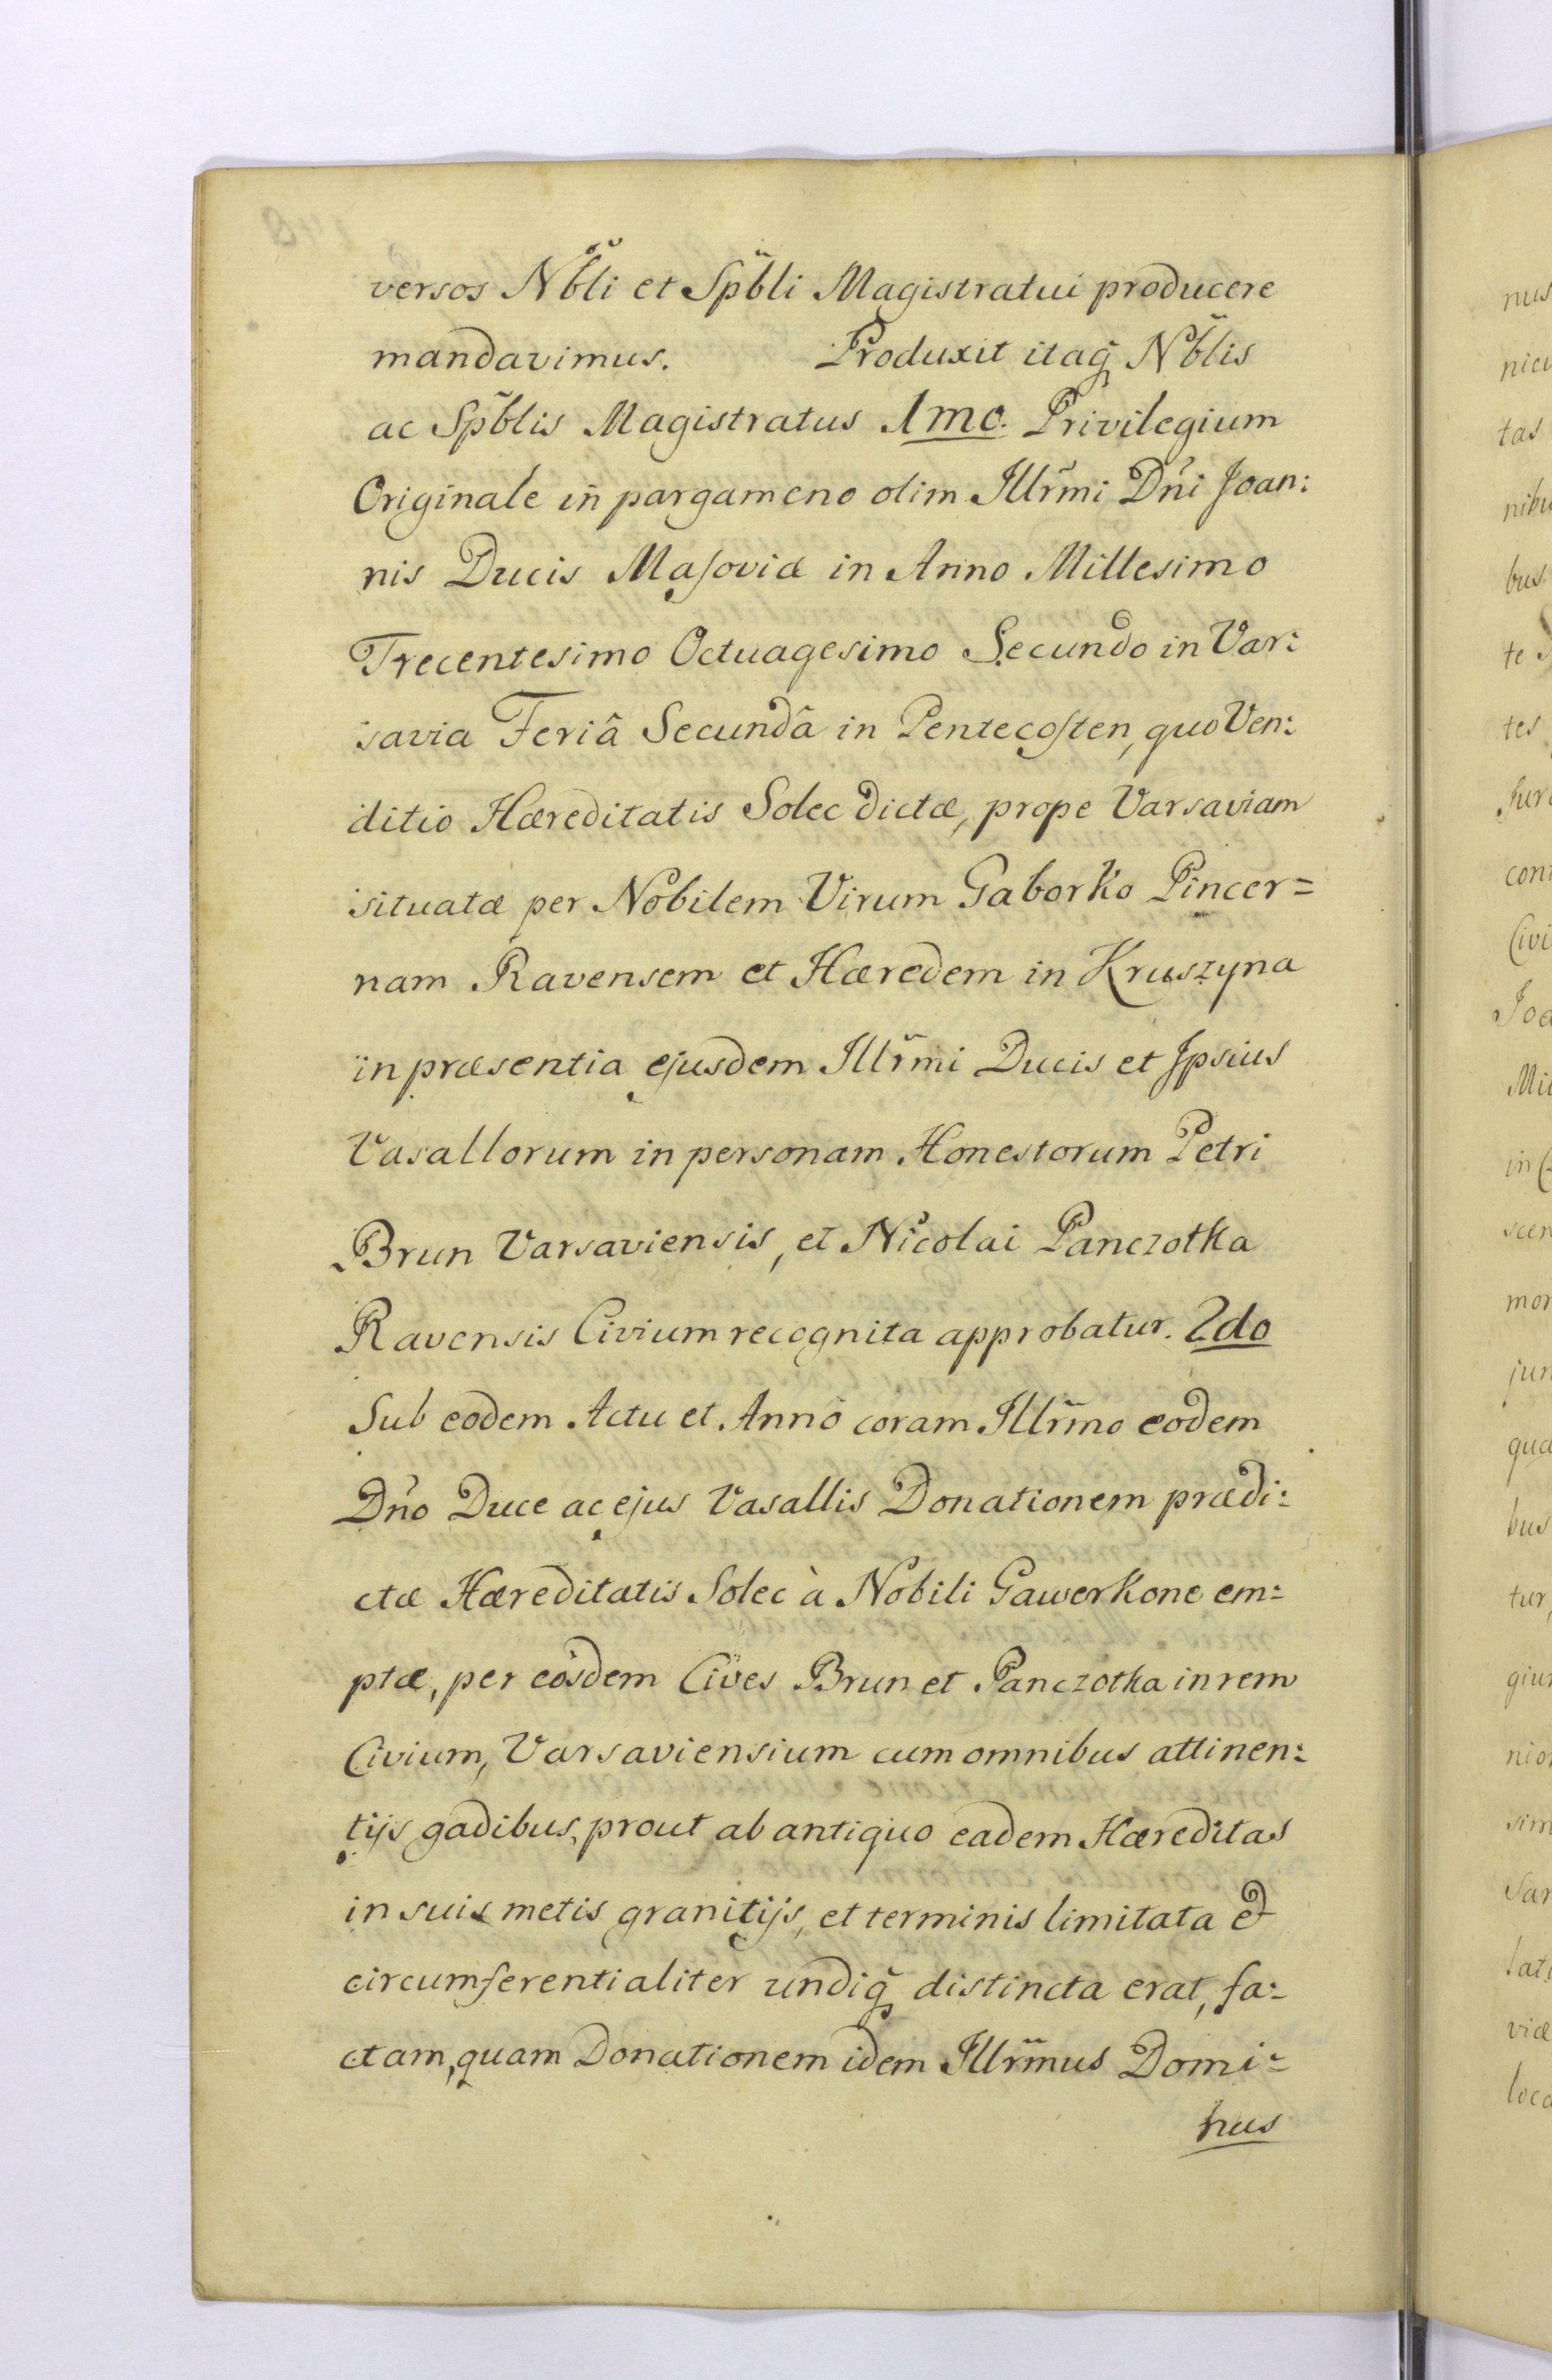 versos Nb̃li et Spb̃li Magistratui producere
mandavimus. Produxit itaq̃ Nb̃lis
ac Spb̃lis Magistratus 1mo. Privilegium
Originale in pargameno olim Illr̃mi Dñi Joan:
nis Ducis Masoviæ in Anno Millesimo
Trecentesimo Octuagesimo Secundo in Var:
savia Feriâ Secundâ in Pentecosten, quo Ven:
ditio Hæreditatis Solec dictæ, prope Varsaviam
situatæ per Nobilem Virum Gaborko Pincer=
nam Ravensem et Hæredem in Kruszyna
in præsentia ejusdem Illr̃mi Ducis et Ipsius
Vasallorum in personam Honestorum Petri
Brun Varsaviensis, et Nicolai Panczotka
Ravensis Civium recognita approbatur. 2do
Sub eodem Actu et Anno coram Illr̃mo eodem
Dño Duce ac ejus Vasallis Donationem prædi:
ctæ Hæreditatis Solec à Nobili Gawerkone em:
ptæ, per eosdem Cives Brun et Panczotka in rem
Civium, Varsaviensium cum omnibus attinen:
tijs gadibus, prout ab antiquo eadem Hæreditas
in suis metis granitijs, et terminis limitata et
circumferentialiter undiq̃ distincta erat, fa:
ctam, quam Donationem idem Illr̃mus Domi:
nus